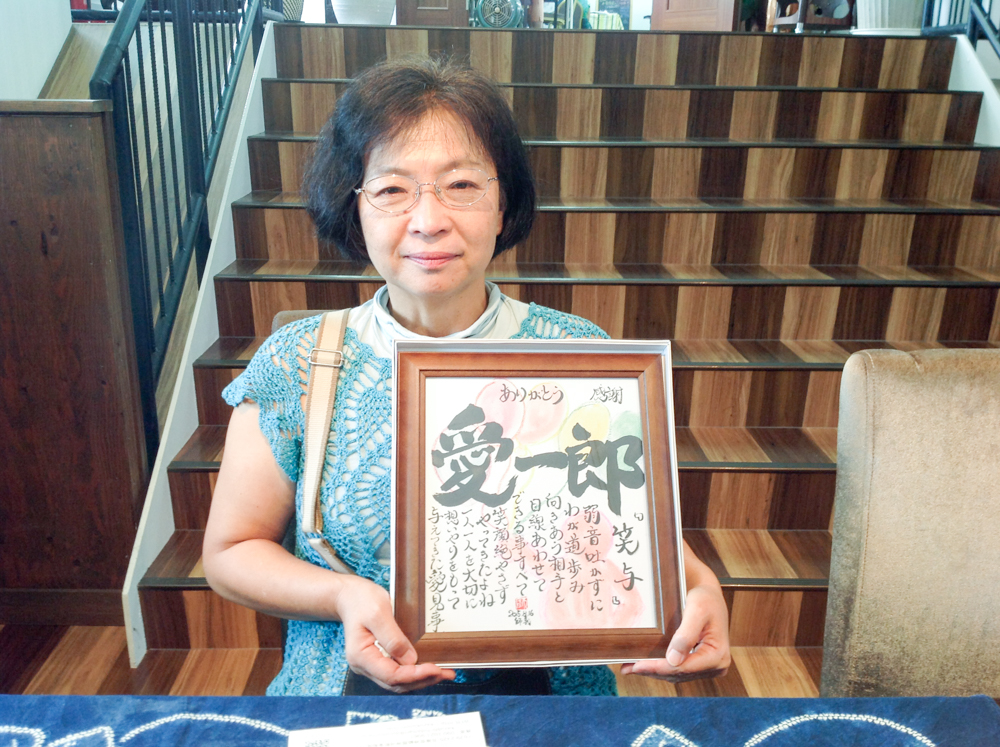 ありがとう 感謝
愛一郎
笑与
弱音吐かずに
わが道歩み
向きあう相手と
目線あわせて
できる事すべて
笑顔絶やさず
やってきたよね
一人一人を大切に
想いやりをもって
与えてきた愛見事